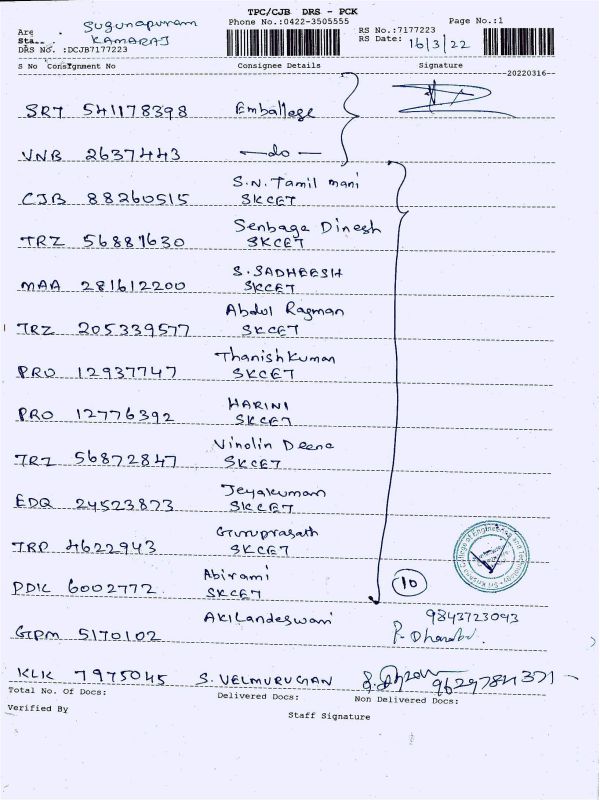 TPC/CJB DRS - PCK
Are Sugunapuram Phone No.:0422-3505555 RS No.:7177223 Page No.:1
Sta.. KAMARAJ RS Date: 16/3/22
DRS No. :DCJB7177223
S No Consignment No Consignee Details Signature
20220316
SRT 541178398 Emballage
VNB 2637443 —do—
CJB 88260515 S.N. Tamil mani
SKCET
TRZ 56887630 Senbaga Dinesh
SKCET
MAA 281612200 S.SADHEESH
SKCET
TRZ 205339577 Abdul Ragman
SKCET
PRO 12937747 Thanishkumar
SKCET
PRO 12776392 HARINI
SKCET
TRZ 56872847 Vinolin Deena
SKCET
EDQ 24523873 Jeyakumar
SKCET
TRP 4622943 Guruprasath
SKCET
PDK 6002772 Abirami
SKCET 10
Sri Krishna College of Engineering and Technology
GPM 5170102 AKilandeswari 9843723093
KLK 7975045 S. VELMURUGAN 9629784371
Total No. Of Docs: Delivered Docs: Non Delivered Docs:
Verified By
Staff Signature